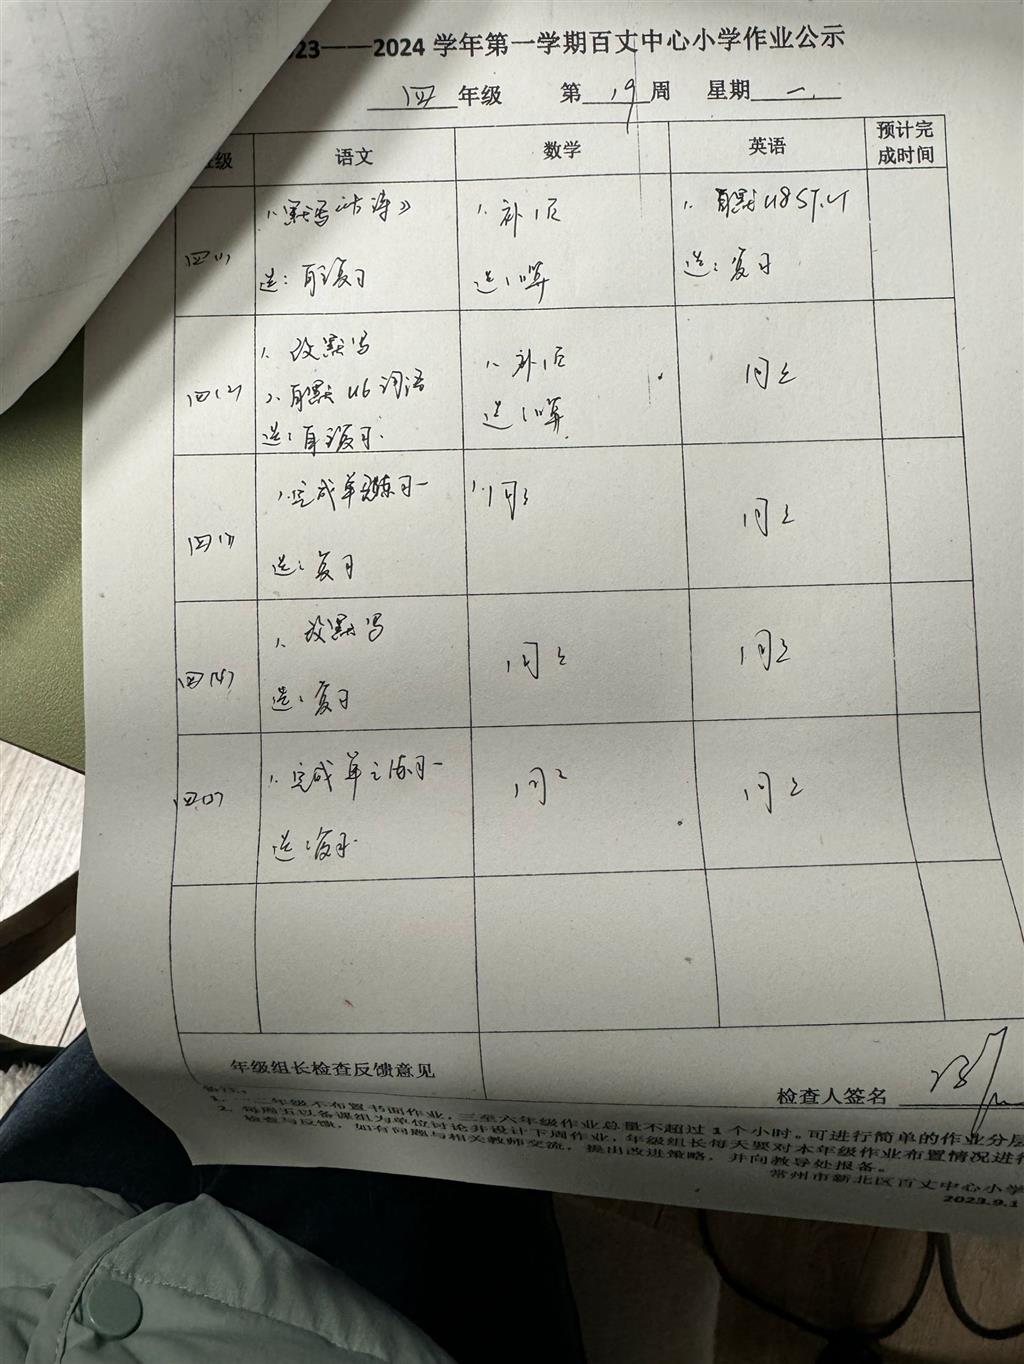 23——2024 学年第一学期百丈中心小学作业公示
四 年级 第 19 周 星期 一
级 语文 数学 英语 预计完成时间
四(1)
1. 默写《古诗》
选：自主复习
1. 补1页
选：口算
1. 自默U8
选：复习
四(2)
1. 改默写
2. 自默U6词语
选：自主复习
1. 补1页
选：口算
同上
四(3)
1. 完成单元练习一
选：复习
1. 同上
同上
四(4)
1. 改默写
选：复习
同上
同上
1. 完成单元练习一
选：复习
同上
同上
年级组长检查反馈意见
检查人签名
1. 一二年级不布置书面作业，三至六年级作业总量不超过 1 个小时。可进行简单的作业分层
2. 每周五以备课组为单位讨论并设计下周作业，年级组长每天要对本年级作业布置情况进行
检查与反馈，如有问题与相关教师交流，提出改进策略，并向教导处报备。
常州市新北区百丈中心小学
2023.9.1